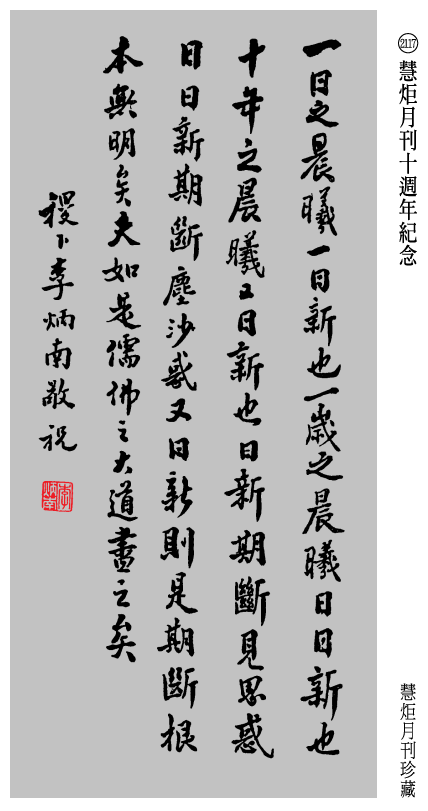 2117 慧炬月刊十週年紀念
慧炬月刊珍藏
一日之晨曦一日新也一歲之晨曦日日新也
十年之晨曦又日新也日新期斷見思惑
日日新期斷塵沙惑又日新則是期斷根
本無明矣夫如是儒佛之大道盡之矣
稷下李炳南敬祝
李炳南